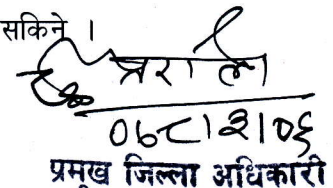 सकिने ।
०७८।३।०६
प्रमुख जिल्ला अधिकारी